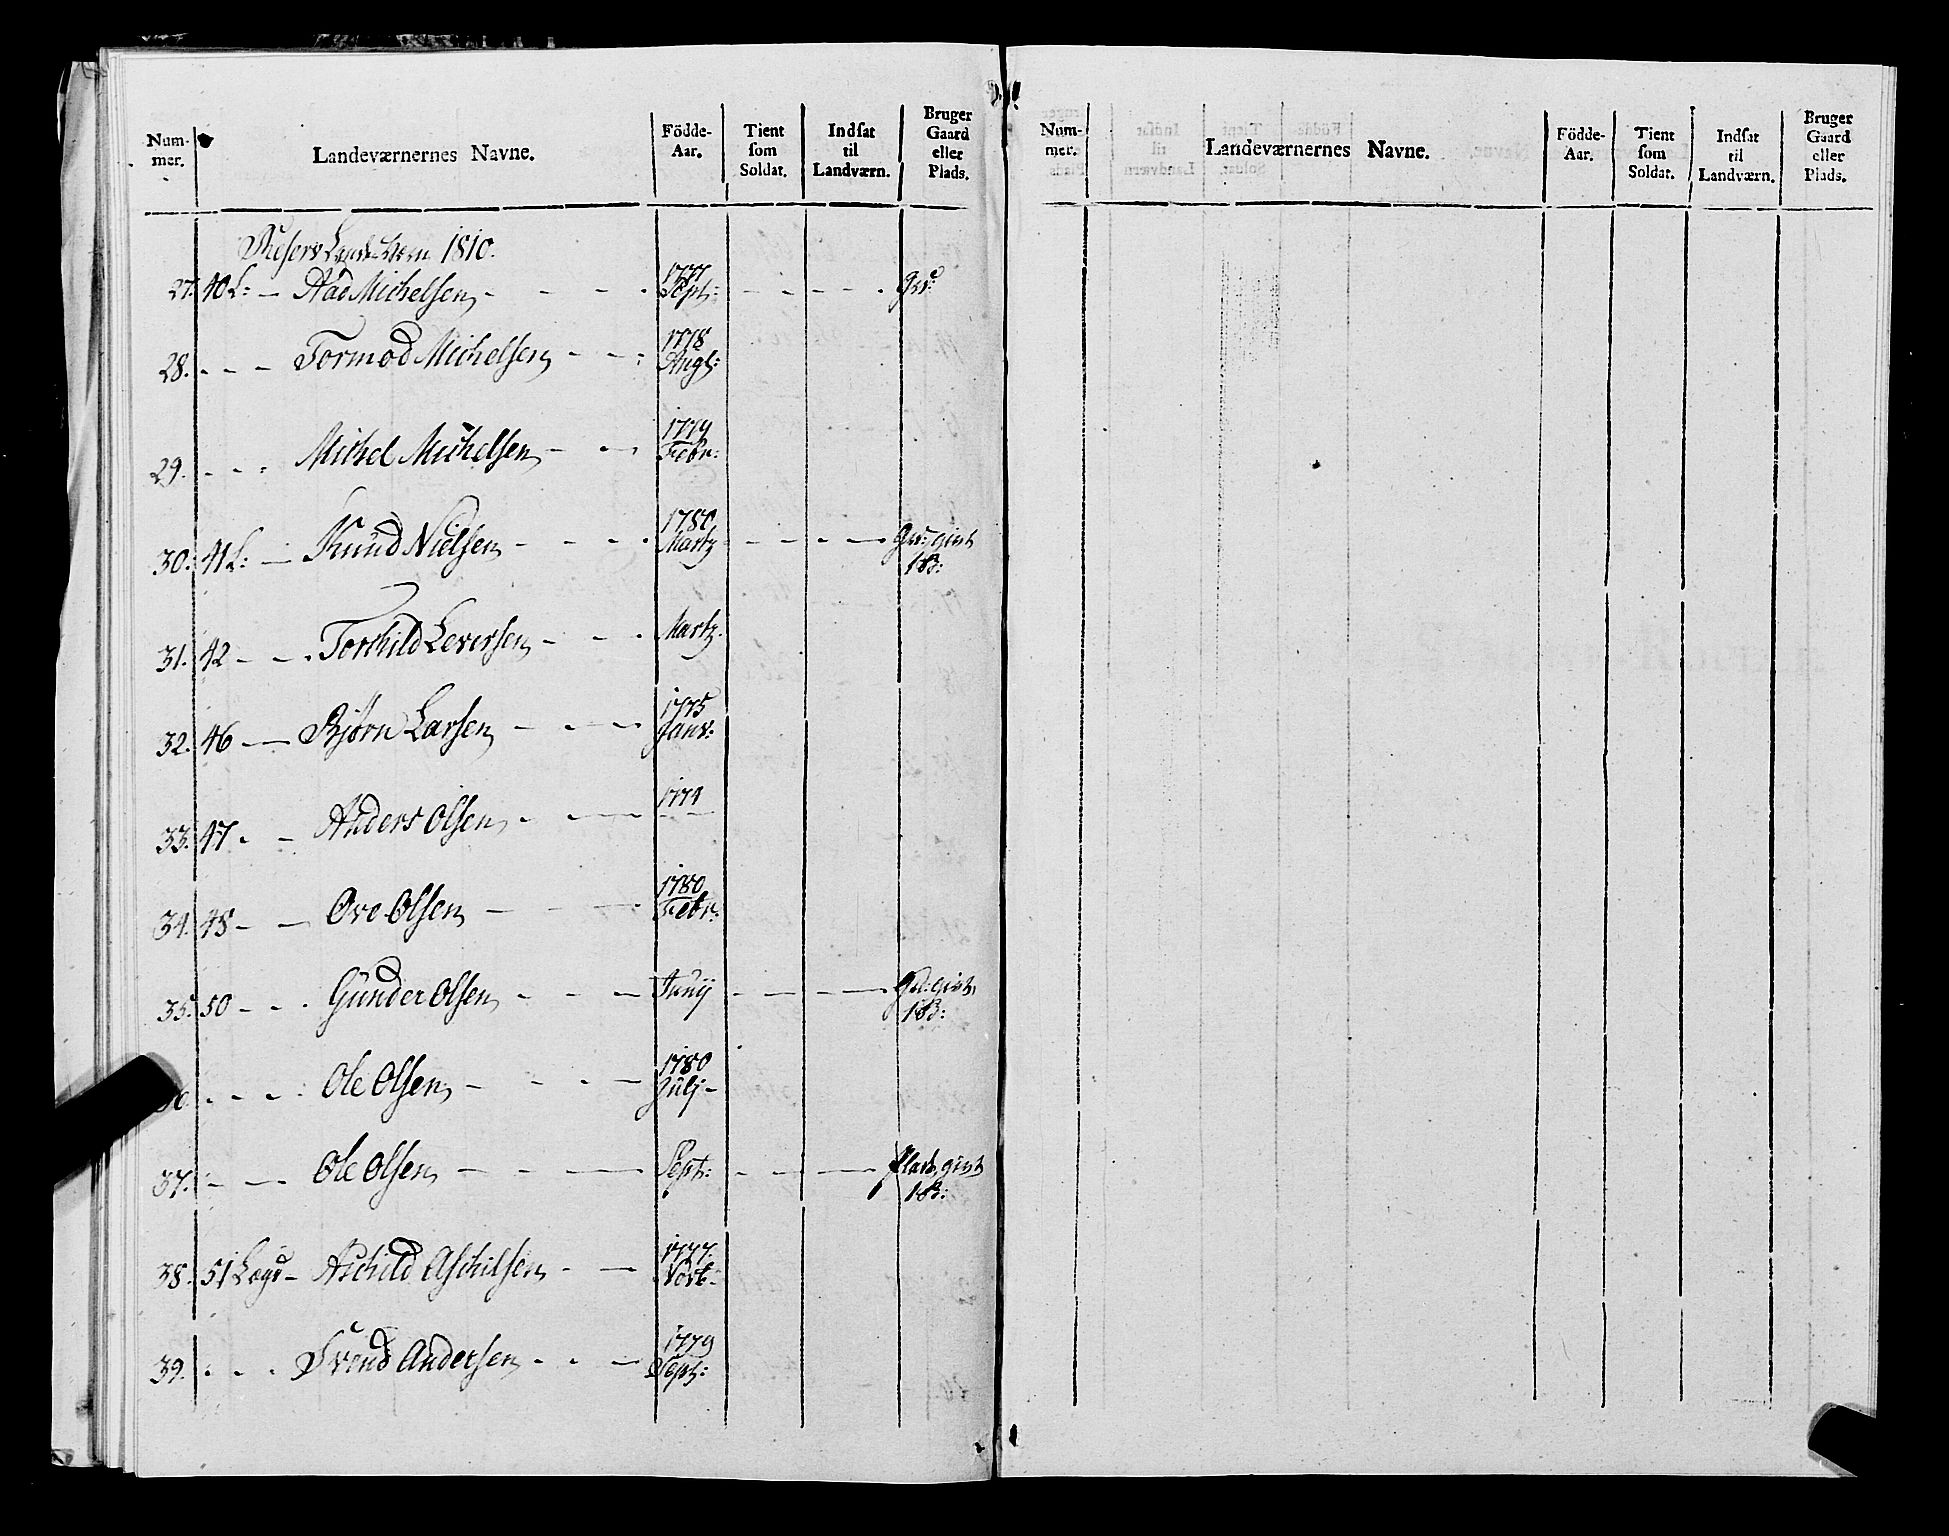 Num-
mer.
Landeværnernes Navne.
Födde-
Aar.
Tient
som
Soldat.
Indsat
til
Landværn.
Bruger
Gaard
eller
Plads.
1810.
27. 40 L: Aad Michelsen 1777 Sept:
28. Tormod Michelsen 1778 Augt:
29. Michel Michelsen 1779 Febr:
30. 41 L: Knud Nielsen 1780 Martz givt
1 B:
31. 42 Torkild Leversen Martz
32. 46 Bjørn Larsen 1775 Janr:
33. 47 Anders Olsen 1774
34. 48 Ove Olsen 1780 Febr:
35. 50 Gunder Olsen Junij givt
1 B:
Ole Olsen 1780 Julj
37. Ole Olsen Sept: Plads givt
1 B:
38. 51 Lægd Aschild Aschilsen 1777. Novb
39. Svend Andersen 1779 Sept:
Num-
mer.
Landeværnernes Navne.
Födde-
Aar.
Tient
som
Soldat.
Indsat
til
Landværn.
Bruger
Gaard
eller
Plads.